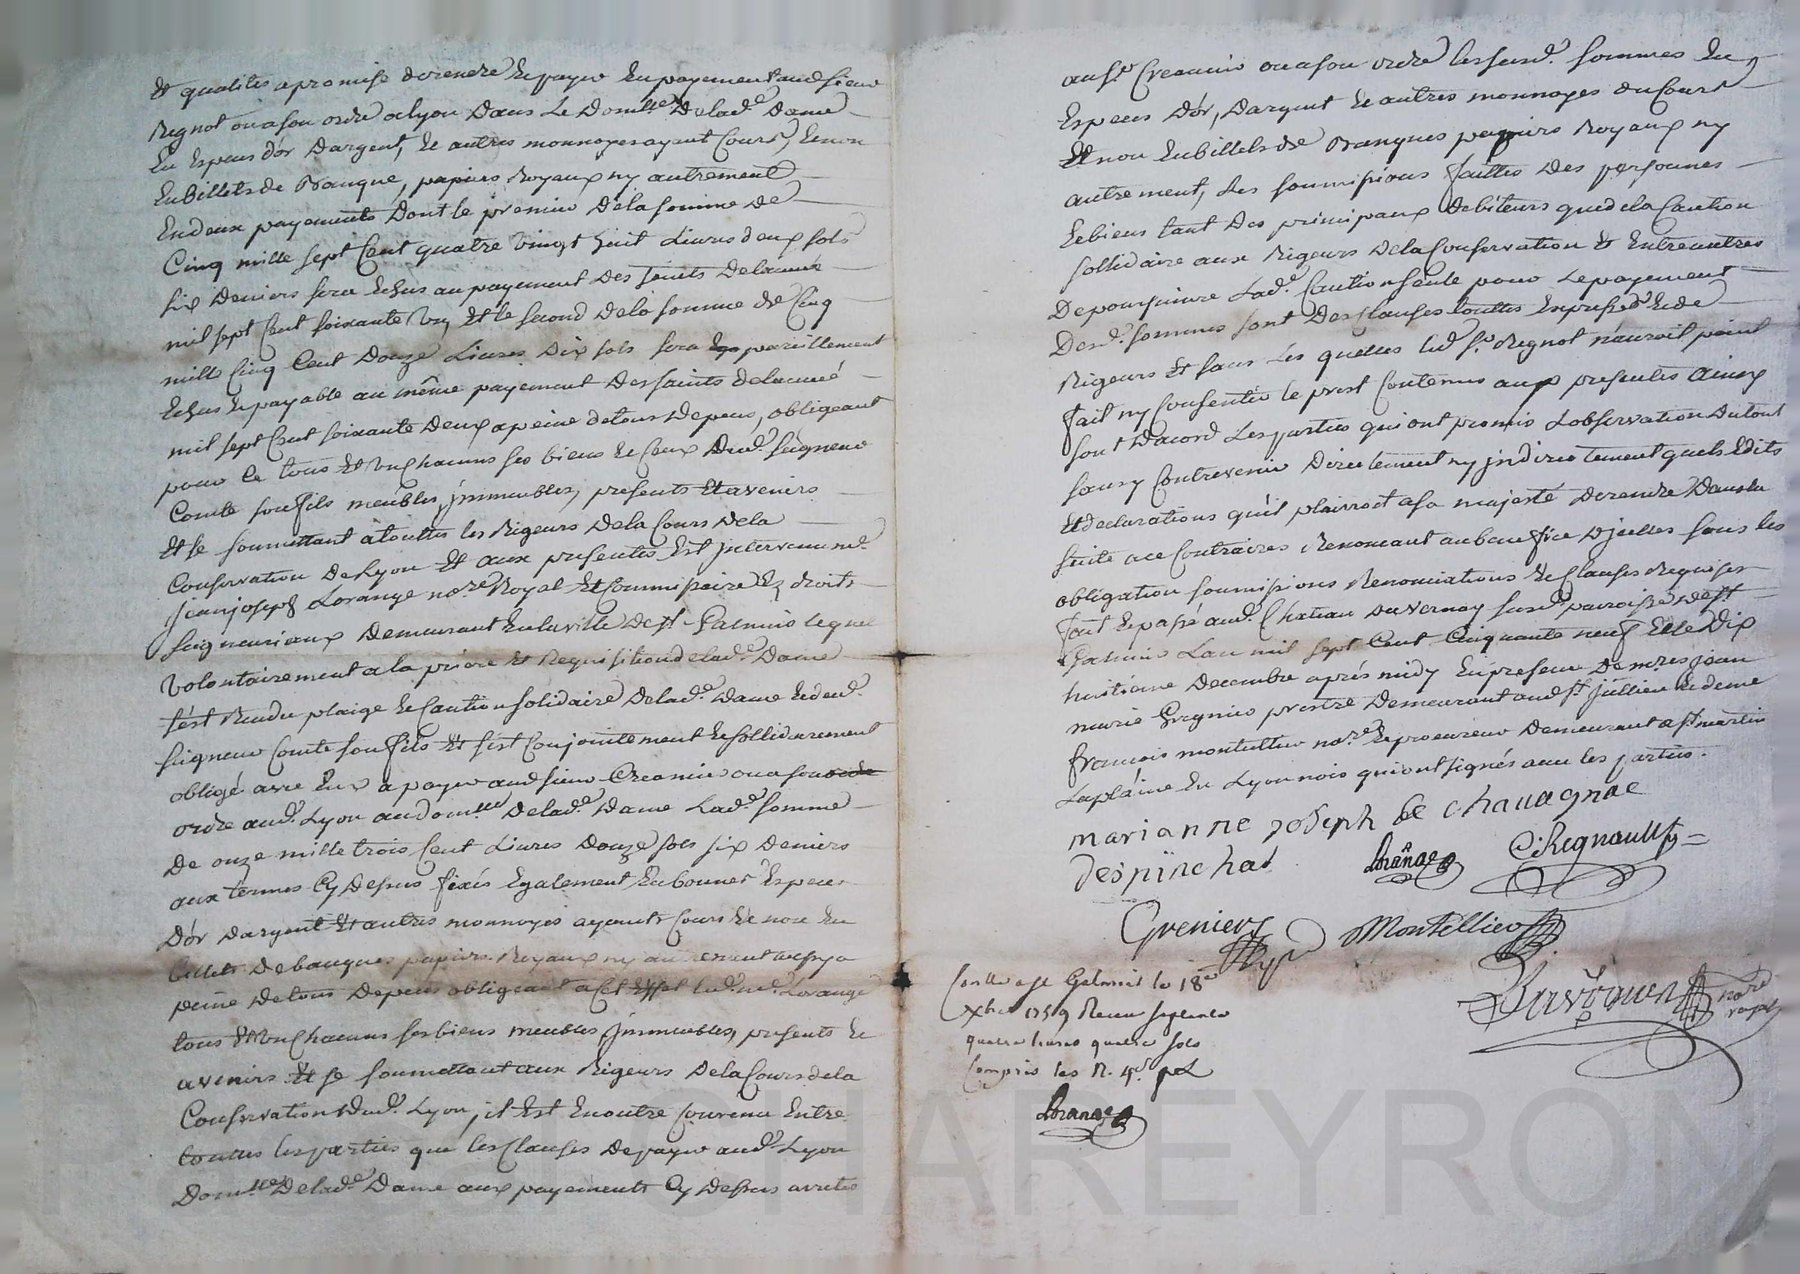 et qualités a promise de rendre et payer en payement aud. sieur
Regnot ou a son ordre a Lyon dans le Dom.lle de lad.e Dame
en Especes dor dargent, et autres monnoyes ayant Cours, et non
en billets de Banque, papiers Royaux ny autrement
en deux payements dont le premier de la somme de
Cinq mille sept Cent quatre vingt huit Livres deux sols
six deniers sera Echus au payement des saints de lanné
mil sept Cent soixante un, et le second de la somme de Cinq
mille Cinq Cent douze Livres dix sols sera pareillement
Echus et payable au même payement des saints de lanneé
mil sept Cent soixante deux a peine de tous depens, obligeant
pour ce tous et un Chacuns ses biens et Ceux dud. seigneur
Comte son fils meubles, jmmeubles, presents et avenirs
et se soumettant à touttes les Rigeurs de la Cours de la
Conservation de Lyon et aux presentes est jntervenu m.e
Jean joseph Lorange no.re Royal et Commissaire Ez droits
seigneuriaux demeurant en la ville de s.t Galmier lequel
volontairement a la priere et Requisition de lad.e Dame
s'est Rendu plaige et Caution solidaire de lad.e Dame et dud.
seigneur Comte son fils et s'est Conjointement et sollidairement
obligé avec Eux a payer aud. sieur ou a son
ordre aud. Lyon au dom.lle de lad.e Dame Lad.e somme
de onze mille trois Cent Livres douze sols six deniers
aux termes Cy dessus fixés Egalement en bonnes Especes
dor dargent et autres monnoyes ayants Cours et non en
billets de banques papiers Royaux ny autrement
peine de tous depens obligeant a Cet Effet led. m.e Lorange
tous et un Chacuns ses biens meubles, jmmeubles, presents et
avenirs et se soumettant aux Rigeurs de la Cours de la
Conservation dud. Lyon, jl est en outre Convenu entre
touttes les parties que les Clauses de payer aud. Lyon
Dom.lle de lad.e Dame aux payements Cy dessus arretés
au s.r ou a son ordre les susd. sommes en
Especes dor, dargent et autres monnoyes du Court
et non en billets de Banques papiers Royaux ny
autrement, les soumissions faittes des personnes
et biens tant des principaux debiteurs que de la Caution
sollidaire aux Rigeurs de la Conservation et entre autres
de poursuivre Lad.e Caution seule pour le payement
desd. sommes sont des Clauses touttes Expresses et de
Rigeurs et sans les quelles led. s.r Regnot n'auroit point
fait ny Consentir le prest Contenus aux presentes ainsy
sont dacord les parties qui ont promis Lobservation du tout
sans y Contrevenir directement ny jndirectement quels Edits
et declarations qu'il plairroit a sa majesté de rendre dans la
suite a ce Contraires Renoncant au benefice djcelles sous les
obligation soumissions Renonciations et Clauses Requises
fait et passé aud. Chateau du vernay susd. parroisse de s.t
Galmier Lan mil sept Cent Cinquante neuf et le dix
huitieme decembre aprés midy en presence de m.res jean
marie Gregnier prestre demeurant aud. s.t Jullien et de me
francois montellier no.re et procureur demeurant a s.t martin
Laplaine en Lyonnois qui ont signés avec les parties.
marianne joseph de chauagnac
despinchal Lorange C. Regnault
Grenier Montellier
no.re
royal
Conlle a st Galmier le 18e
Xbre 1759 Receu septente
quatre livres quatre sols
Compris les
Lorange
CHAREYRON